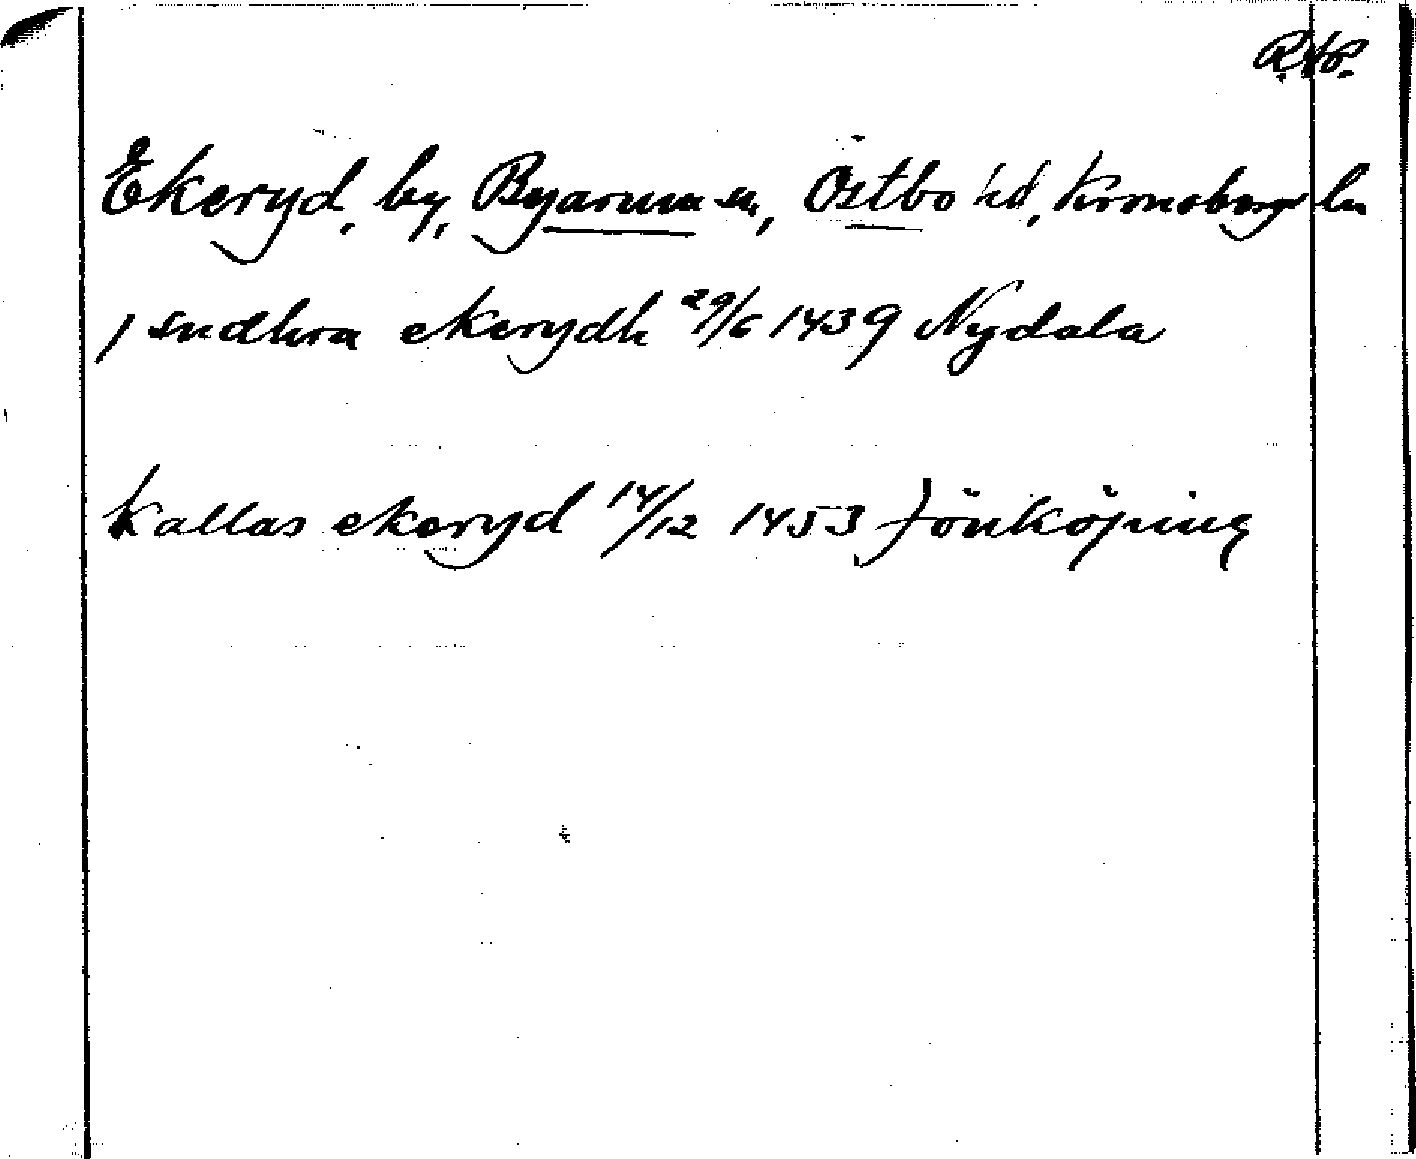 R.A.P.
Ekeryd, by, Byarum sn, Östbo hd, Kronobergs ln
j sudhra ekerydh 29/6 1439 Nydala
Kallas ekeryd 14/12 1453 Jönköping